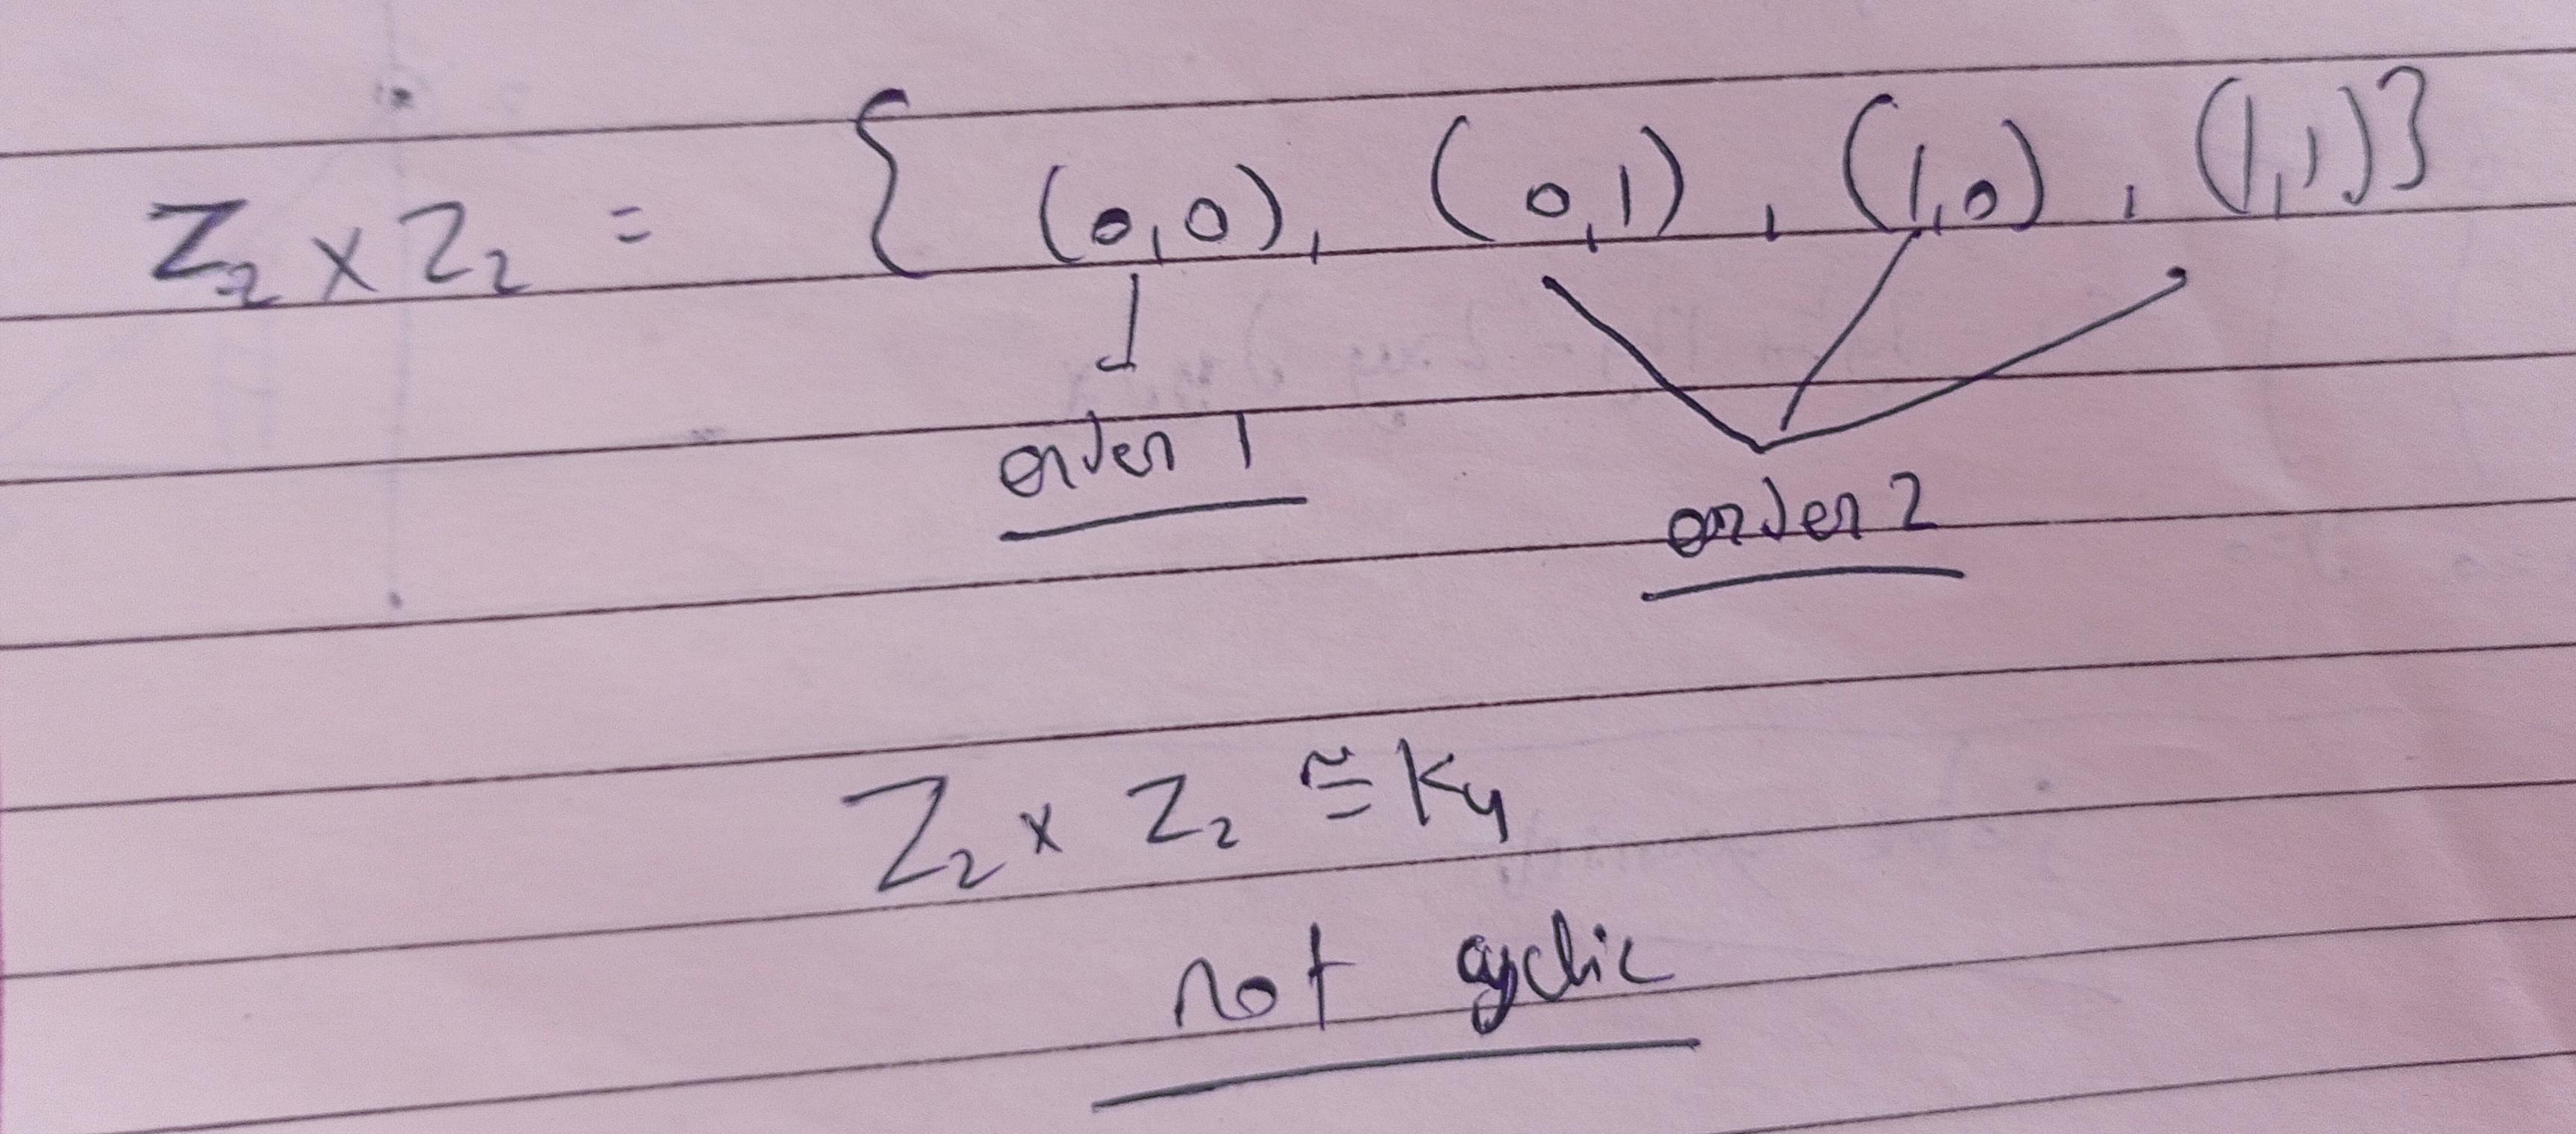 Z₂ × Z₂ = { (0,0), (0,1), (1,0), (1,1)}
order 1
order 2
Z₂ × Z₂ ≅ K₄
not cyclic